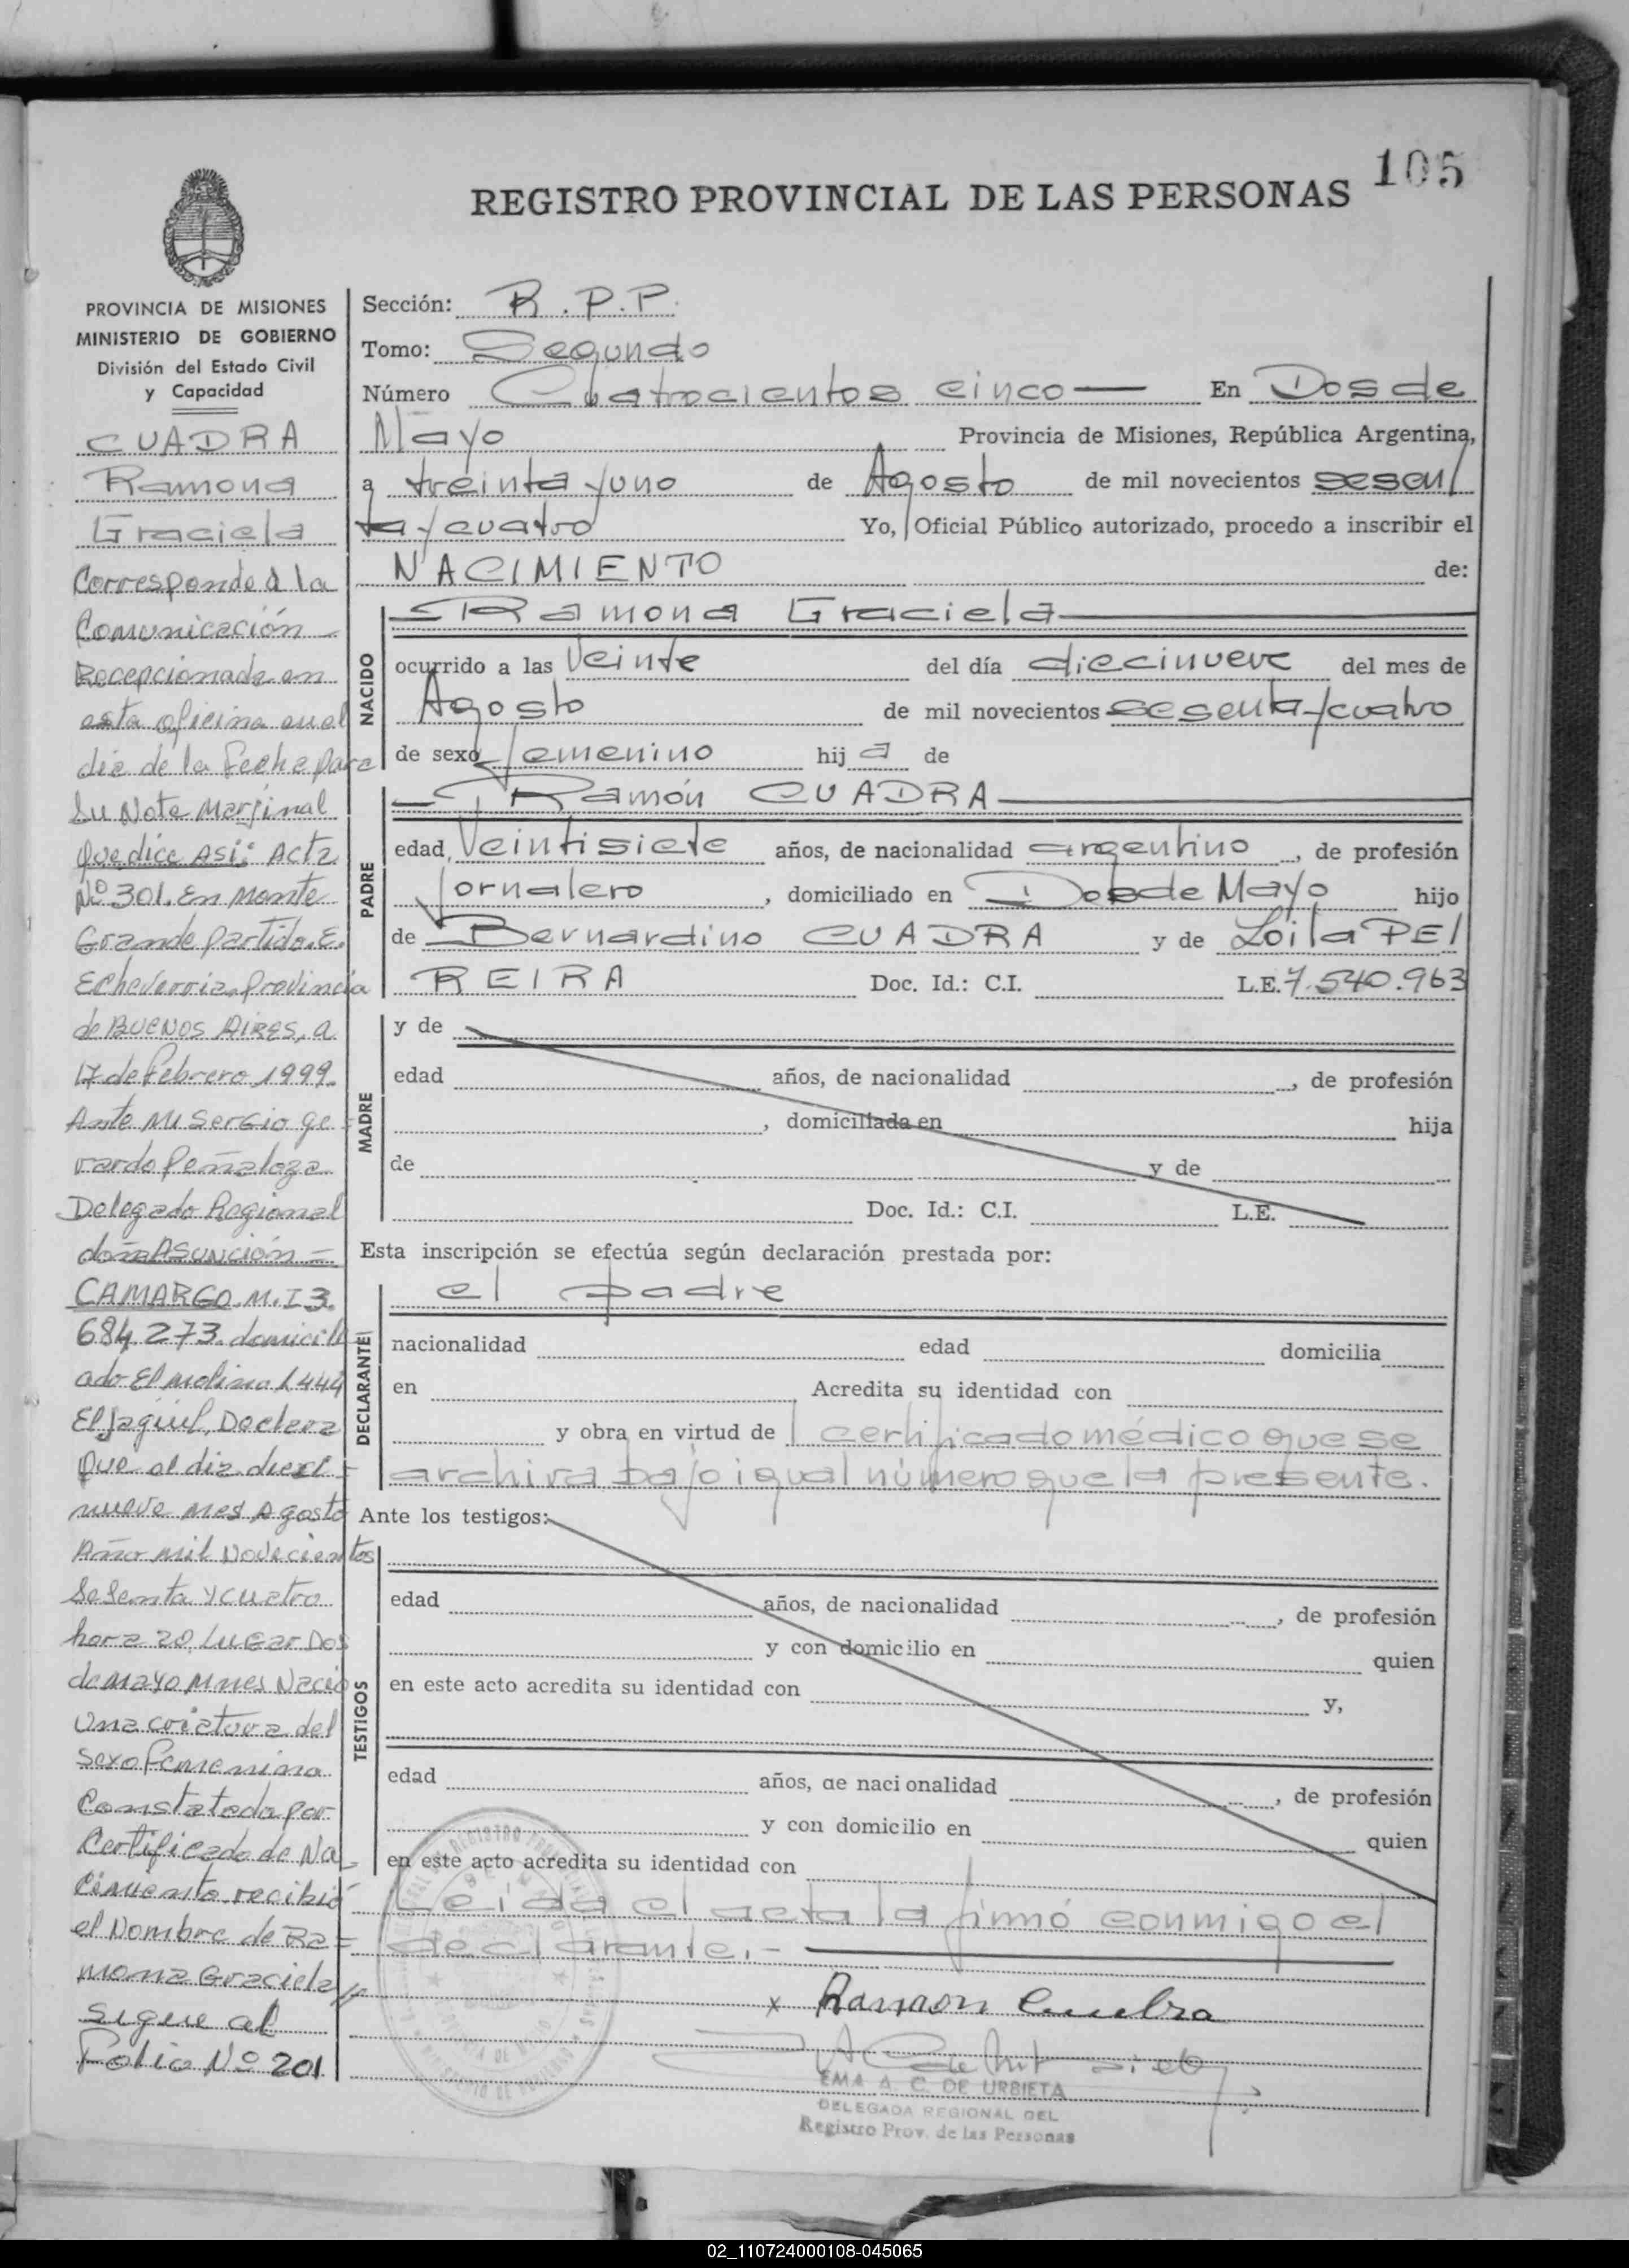 105
REGISTRO PROVINCIAL DE LAS PERSONAS
PROVINCIA DE MISIONES
MINISTERIO DE GOBIERNO
División del Estado Civil
y Capacidad
CUADRA
Ramona
Graciela
Corresponde a la
Comunicación
Recepcionada en
esta oficina en el
dia de la fecha para
Su Nota Marginal
que dice Asi: Acta
Nº 301. En Monte
Grande partido. E.
Echeverria. Provincia
de BUENOS AIRES, a
17 de Febrero 1999.
Ante mi Sergio ge=
rardo Peñaloza
Delegado Regional
doña ASUNCIÓN=
CAMARGO. M. I 3.
684 273. domicili
ado El Molino 1444
El Jagüel, Declara
que el dia dieci=
nueve mes Agosto
Año mil Novecientos
Sesenta y cuatro
hora 20, Lugar Dos
de mayo Mnes Nació
Una criatura del
sexo femenino
Constatado por
Certificado de Na_
cimiento recibió
el Nombre de Ra=
mona Graciela //
sigue al
Folio Nº 201
Sección: R.P.P.
Tomo: Segundo
Número Cuatrocientos cinco — En Dos de
Mayo Provincia de Misiones, República Argentina,
a treinta y uno de Agosto de mil novecientos sesen/
ta y cuatro Yo, Oficial Público autorizado, procedo a inscribir el
NACIMIENTO de:
NACIDO
— Ramona Graciela —
ocurrido a las Veinte del día diecinueve del mes de
Agosto de mil novecientos sesenta y cuatro
de sexo femenino hij a de
PADRE
— Ramón CUADRA —
edad Veintisiete años, de nacionalidad argentino, de profesión
Jornalero, domiciliado en Dos de Mayo hijo
de Bernardino CUADRA y de Loila PEI
REIRA Doc. Id.: C.I. L.E. 7.540.963
MADRE
y de
edad años, de nacionalidad , de profesión
, domiciliada en hija
de y de
Doc. Id.: C.I. L.E.
Esta inscripción se efectúa según declaración prestada por:
DECLARANTE
el padre
nacionalidad edad domicilia
en Acredita su identidad con
y obra en virtud de certificado médico que se
archiva bajo igual número que la presente.
Ante los testigos:
TESTIGOS
edad años, de nacionalidad , de profesión
y con domicilio en quien
en este acto acredita su identidad con y,
edad años, de nacionalidad , de profesión
y con domicilio en quien
en este acto acredita su identidad con
Leída el acta la firmó conmigo el
declarante.- —
x Ramon Cuadra
EMA A. C. DE URBIETA
DELEGADA REGIONAL DEL
Registro Prov. de las Personas
02_110724000108-045065